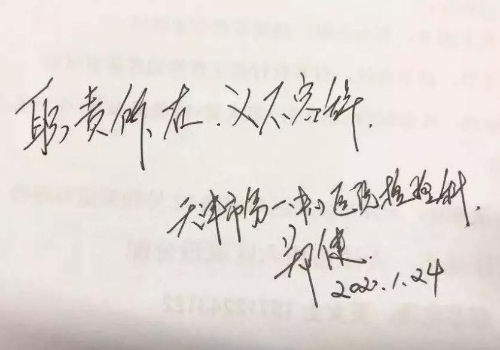 职责所在.义不容辞.
天津市第一中心医院检验科.
2020.1.24